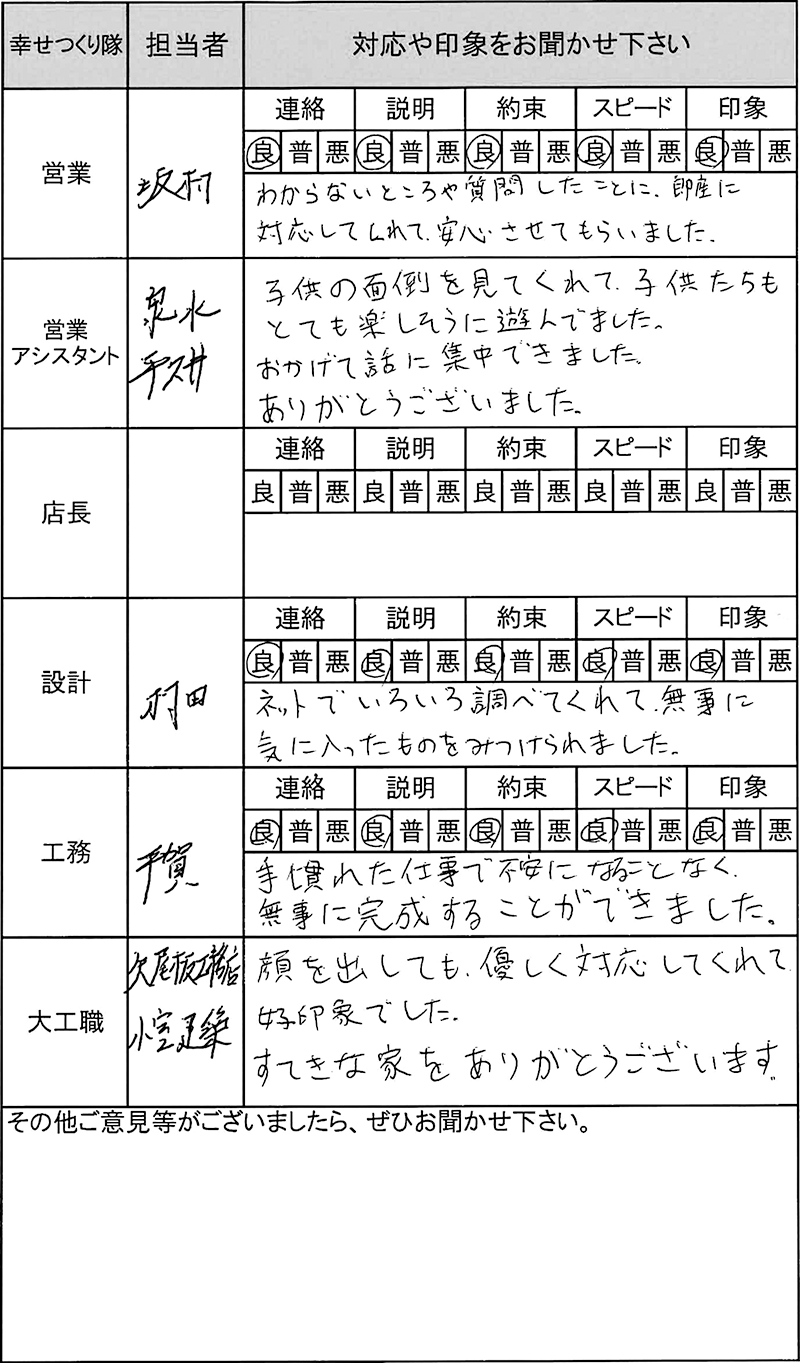 幸せつくり隊 担当者 対応や印象をお聞かせ下さい
営業 坂村
連絡 説明 約束 スピード 印象
良 普 悪 良 普 悪 良 普 悪 良 普 悪 良 普 悪
わからないところや質問したことに、即座に
対応してくれて、安心させてもらいました。
営業
アシスタント
泉水
平井
子供の面倒を見てくれて、子供たちも
とても楽しそうに遊んでました。
おかげで話に集中できました。
ありがとうございました。
店長
連絡 説明 約束 スピード 印象
良 普 悪 良 普 悪 良 普 悪 良 普 悪 良 普 悪
設計 村田
連絡 説明 約束 スピード 印象
良 普 悪 良 普 悪 良 普 悪 良 普 悪 良 普 悪
ネットでいろいろ調べてくれて、無事に
気に入ったものをみつけられました。
工務 平賀
連絡 説明 約束 スピード 印象
良 普 悪 良 普 悪 良 普 悪 良 普 悪 良 普 悪
手慣れた仕事で不安になることなく、
無事に完成することができました。
大工職
小室建築
顔を出しても、優しく対応してくれて
好印象でした。
すてきな家をありがとうございます。
その他ご意見等がございましたら、ぜひお聞かせ下さい。